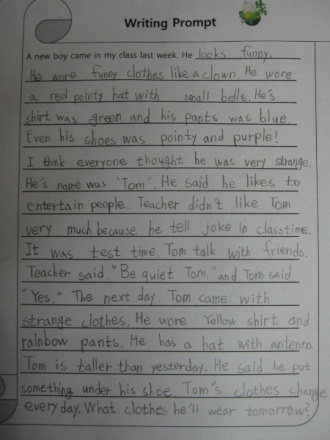 Writing Prompt
A new boy came in my class last week. He looks funny.
He wore funny clothes like a clown. He wore
a red pointy hat with small bells. He's
shirt was green and his pants was blue.
Even his shoes was pointy and purple!
I think everyone thought he was very strange.
He's name was 'Tom'. He said he likes to
entertain people. Teacher didn't like Tom
very much because he tell joke in classtime.
It was test time. Tom talk with friends.
Teacher said, "Be quiet Tom." and Tom said
"Yes." The next day. Tom came with
strange clothes. He wore Yellow shirt and
rainbow pants. He has a hat with antenna.
Tom is taller than yesterday. He said he put
something under his shoe. Tom's clothes change
every day. What clothes he'll wear tomorrow?